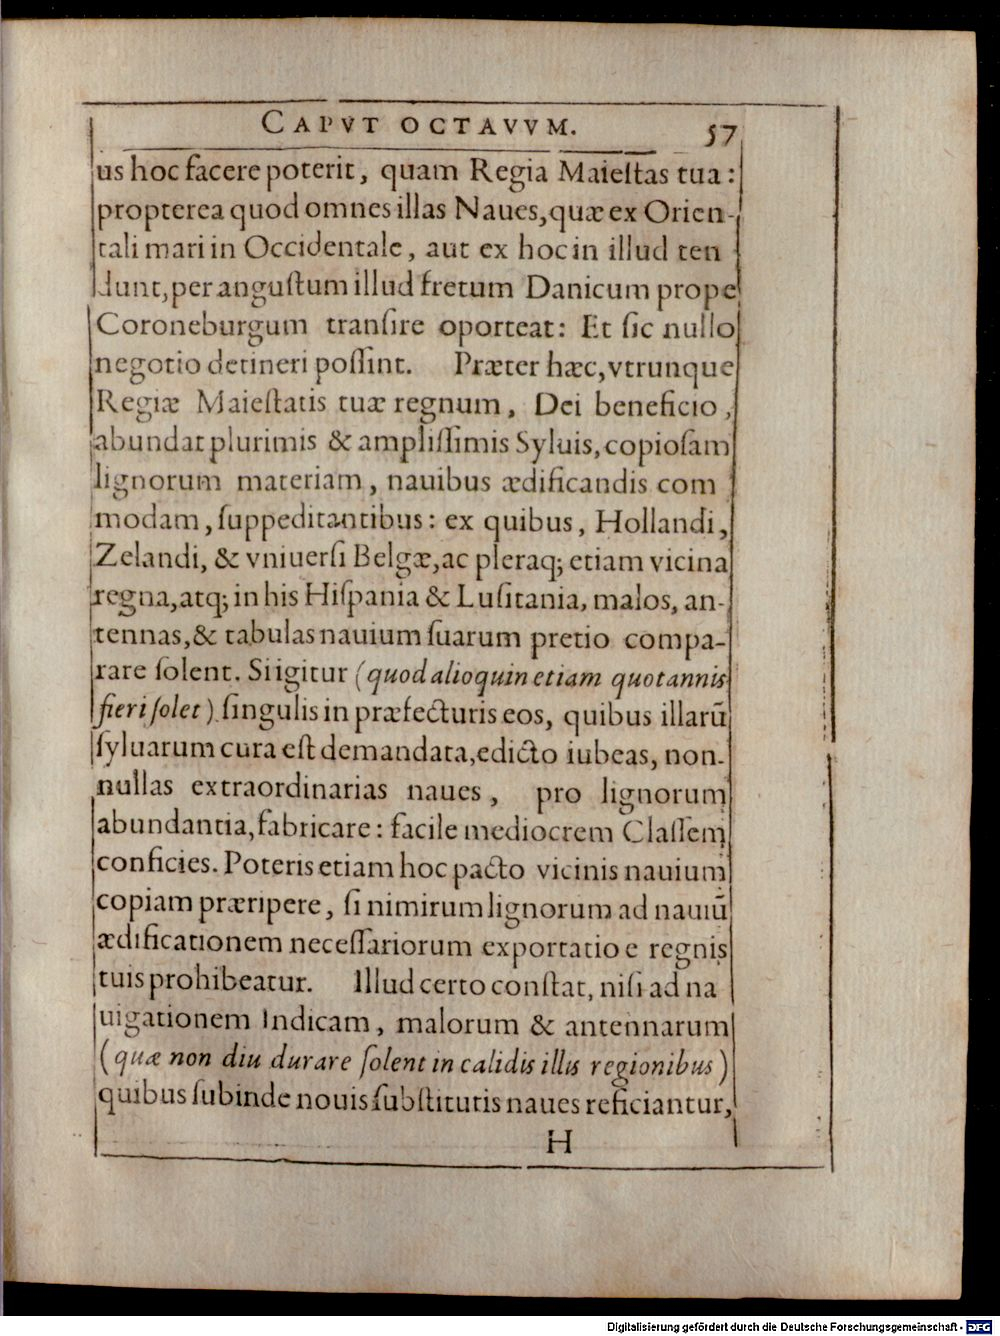 CAPVT OCTAVVM. 57
us hoc facere poterit, quam Regia Maieſtas tua:
propterea quod omnes illas Naues, quæ ex Orien-
tali mari in Occidentale, aut ex hoc in illud ten
dunt, per anguſtum illud fretum Danicum prope
Coroneburgum tranſire oporteat: Et ſic nullo
negotio detineri poſſint. Præter hæc, vtrunque
Regiæ Maieſtatis tuæ regnum, Dei beneficio,
abundat plurimis & ampliſſimis Syluis, copioſam
lignorum materiam, nauibus ædificandis com
modam, ſuppeditantibus: ex quibus, Hollandi,
Zelandi, & vniuerſi Belgæ, ac pleraq; etiam vicina
regna, atq; in his Hiſpania & Luſitania, malos, an-
tennas, & tabulas nauium ſuarum pretio compa-
rare ſolent. Si igitur (quod alioquin etiam quotannis
fieri ſolet) ſingulis in præfecturis eos, quibus illarū
ſyluarum cura eſt demandata, edicto iubeas, non-
nullas extraordinarias naues, pro lignorum
abundantia, fabricare: facile mediocrem Claſſem
conficies. Poteris etiam hoc pacto vicinis nauium
copiam præripere, ſi nimirum lignorum ad nauiū
ædificationem neceſſariorum exportatio e regnis
tuis prohibeatur. Illud certo conſtat, niſi ad na
uigationem Indicam, malorum & antennarum
(quæ non diu durare ſolent in calidis illis regionibus)
quibus ſubinde nouis ſubſtitutis naues reficiantur,
H
Digitalisierung gefördert durch die Deutsche Forschungsgemeinschaft - DFG